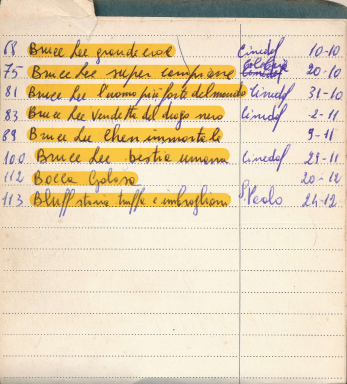 68 Bruce Lee grande eroe Cinedof 10-10
75 Bruce Lee super campione 20-10
81 Bruce Lee l'uomo più forte del mondo Cinedof 31-10
83 Bruce Lee vendetta del drago nero Cinedof 2-11
89 Bruce Lee Chen immortale 9-11
100 Bruce Lee bestia umana Cinedof 29-11
112 Bocca Golosa 20-12
113 Bluff storia truffe e imbroglioni S. Paolo 24-12